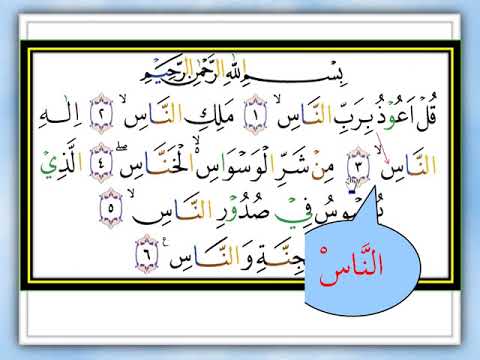 بِسْمِ اللّٰهِ الرَّحْمٰنِ الرَّحِيْمِ
قُلْ اَعُوْذُ بِرَبِّ النَّاسِۙ ١ مَلِكِ النَّاسِۙ ٢ اِلٰهِ
النَّاسِۙ ٣ مِنْ شَرِّ الْوَسْوَاسِ ەۙ الْخَنَّاسِۖ ٤ الَّذِيْ
فِيْ صُدُوْرِ النَّاسِۙ ٥
وَالنَّاسِ ࣖ ٦
النَّاسْ